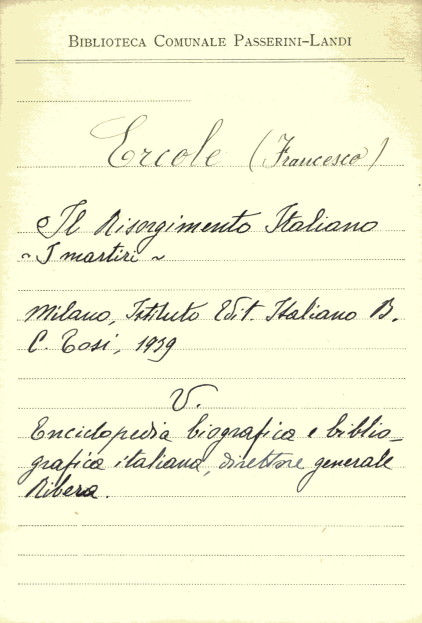 BIBLIOTECA COMUNALE PASSERINI-LANDI
Ercole (Francesco)
Il Risorgimento Italiano
~ I martiri ~
Milano, Istituto Edit. Italiano B.
C. Tosi, 1939
V.
Enciclopedia biografica e biblio-
grafica italiana, direttore generale
Ribera.